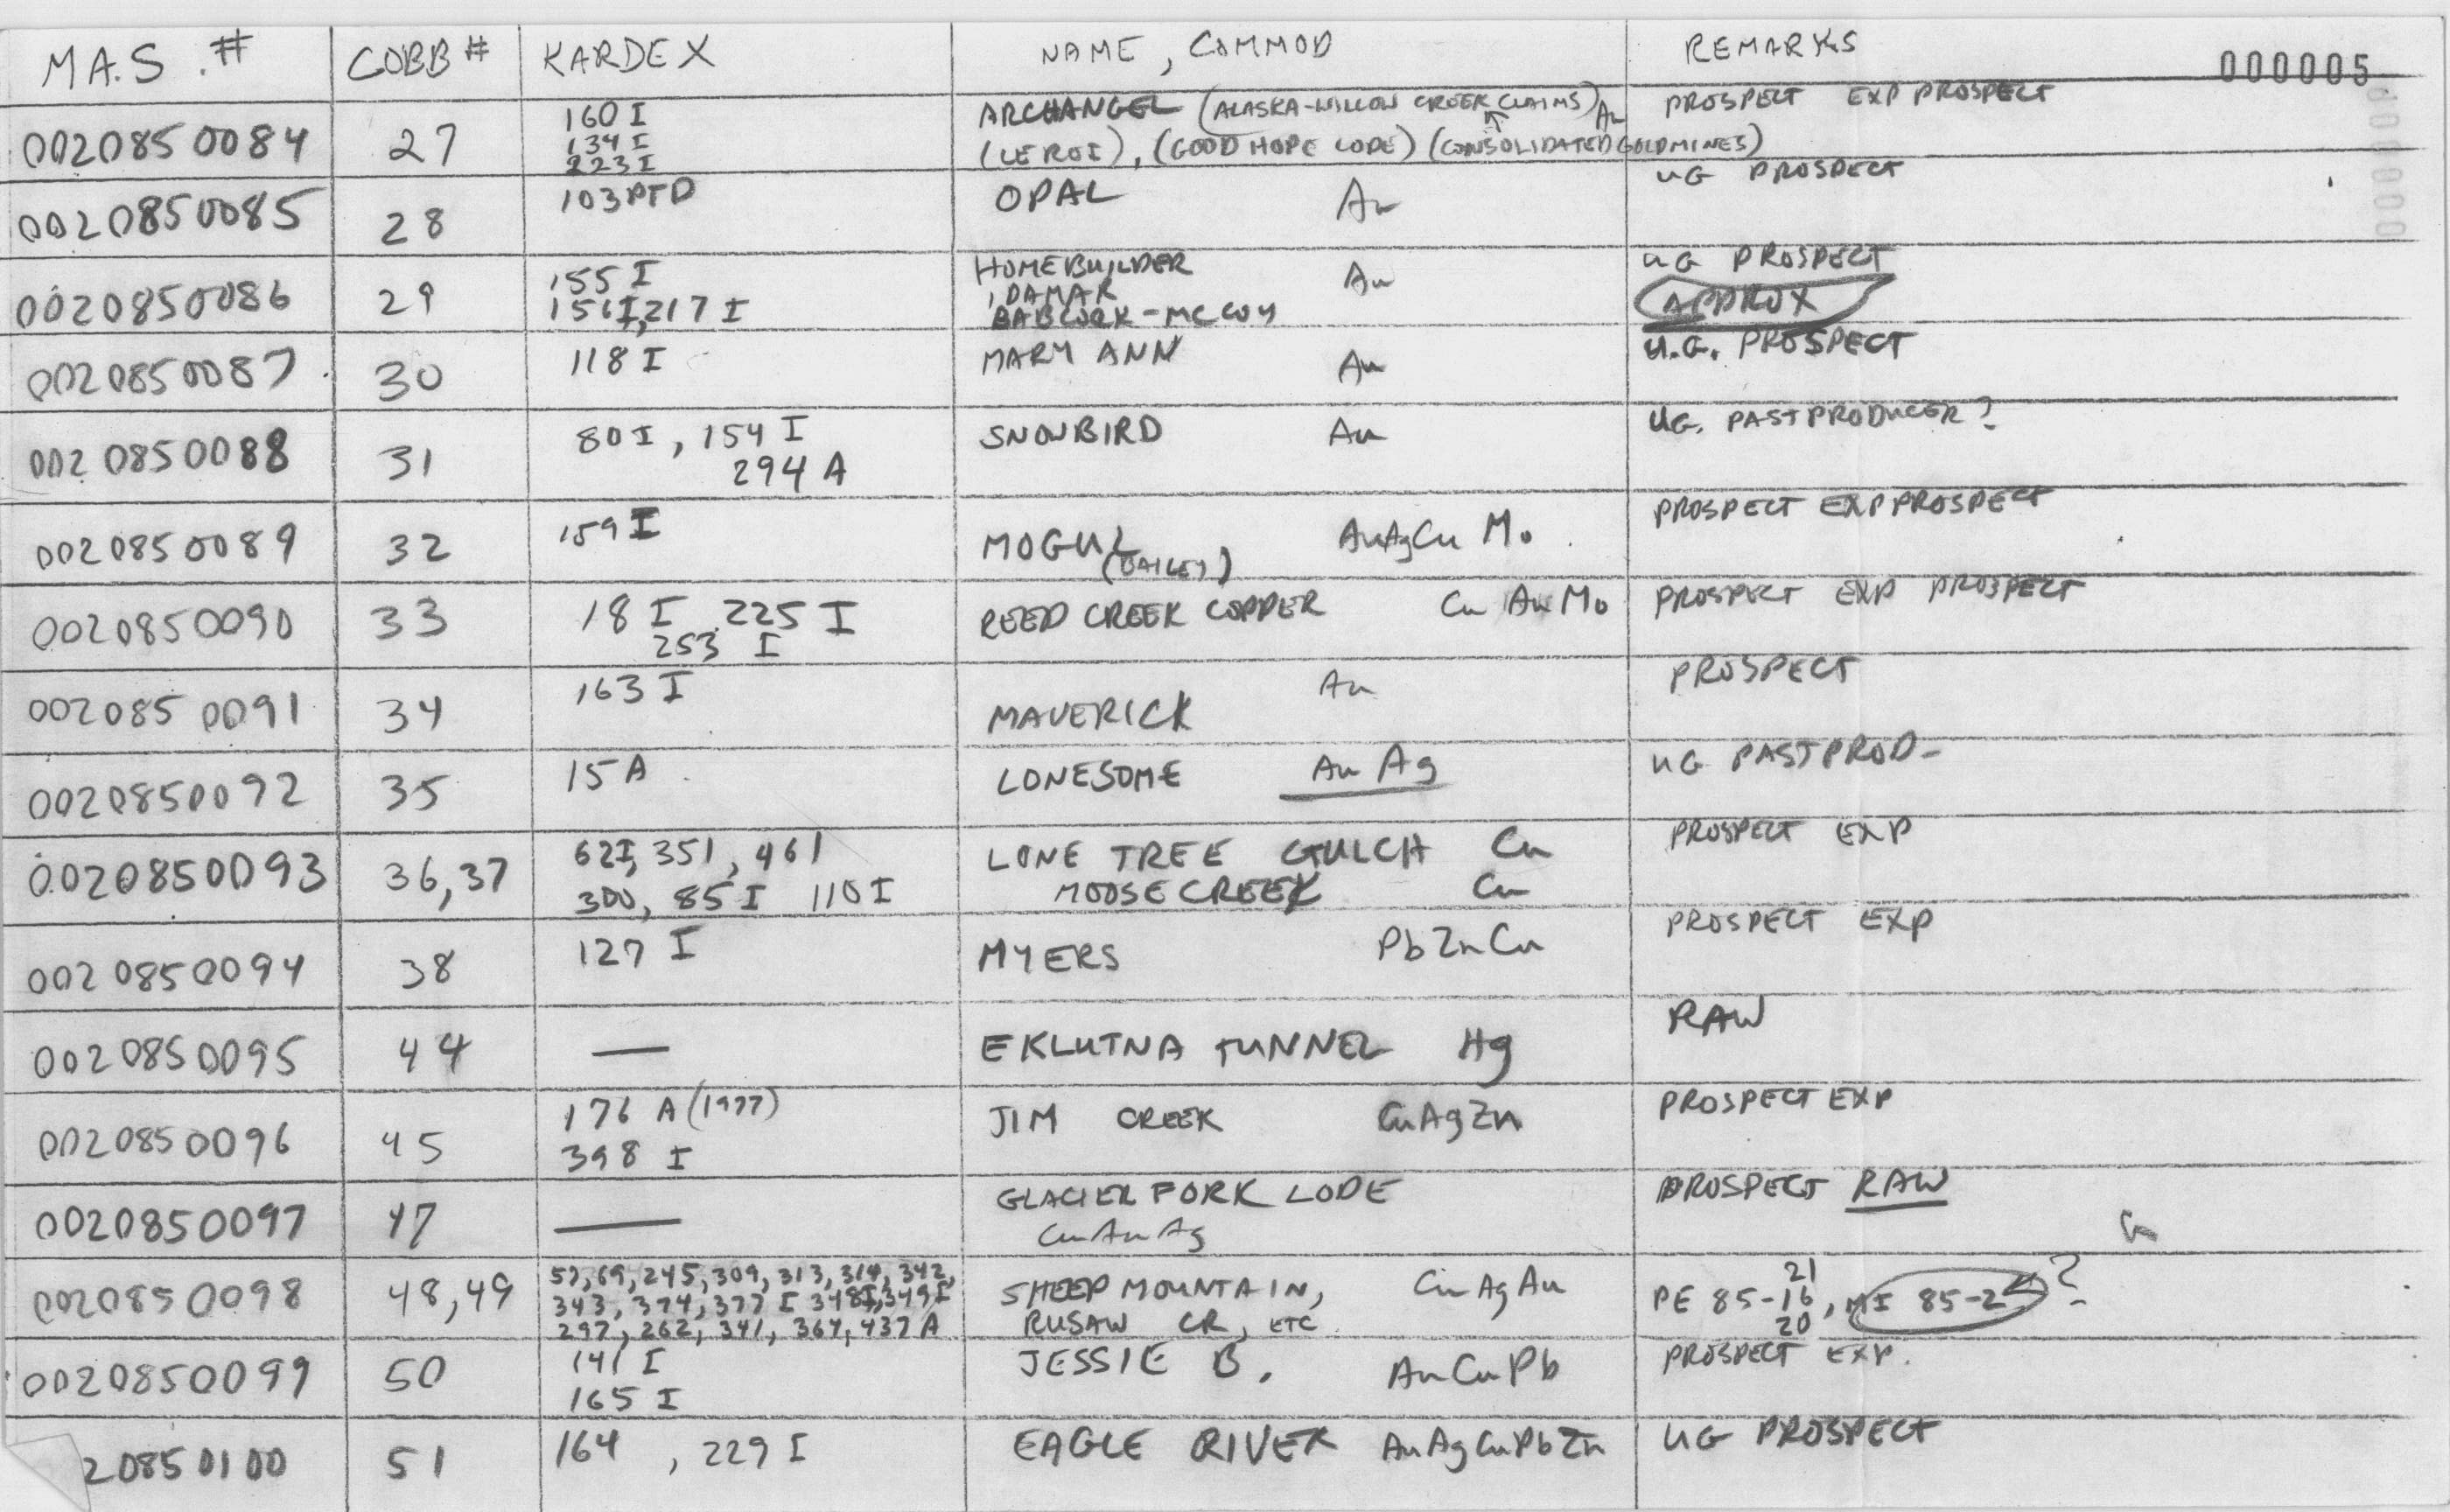 MA.S. # COBB # KARDEX NAME, COMMOD REMARKS 000005
0020850084 27 160 I ARCHANGEL (ALASKA-WILLOW CREEK CLAIMS) Au PROSPECT EXP PROSPECT
134 I (LE ROI), (GOOD HOPE LODE) (CONSOLIDATED GOLD MINES)
223 I
0020850085 28 103 PTD OPAL Au UG PROSPECT
0020850086 29 155 I HOMEBUILDER Au UG PROSPECT
156 I, 217 I , DAMAR APPROX
BABCOCK-MCCOY
0020850087 30 118 I MARY ANN Au U.G. PROSPECT
0020850088 31 80 I, 154 I SNOWBIRD Au UG. PAST PRODUCER?
294 A
0020850089 32 159 I MOGUL AuAgCu Mo PROSPECT EXP PROSPECT
(DAILEY)
0020850090 33 18 I 225 I REED CREEK COPPER Cu Au Mo PROSPECT EXP PROSPECT
253 I
0020850091 34 163 I MAVERICK Au PROSPECT
0020850092 35 15 A LONESOME Au Ag UG PAST PROD-
0020850093 36,37 62I, 351, 461 LONE TREE GULCH Cu PROSPECT EXP
300, 85 I 110 I MOOSE CREEK Cu
0020850094 38 127 I MYERS Pb Zn Cu PROSPECT EXP
0020850095 44 — EKLUTNA TUNNEL Hg RAW
0020850096 45 176 A (1977) JIM CREEK CuAgZn PROSPECT EXP
398 I
0020850097 47 — GLACIER FORK LODE PROSPECT RAW
Cu Au Ag
0020850098 48,49 57, 69, 245, 309, 313, 314, 342, SHEEP MOUNTAIN, Cu Ag Au PE 85-16, MI 85-24?
343, 374, 377 I 348I, 349 I RUSAW CR, ETC 21
297, 262, 341, 367, 437 A 20
0020850099 50 141 I JESSIE B. AuCuPb PROSPECT EXP.
165 I
20850100 51 164, 229 I EAGLE RIVER AuAgCuPbZn UG PROSPECT